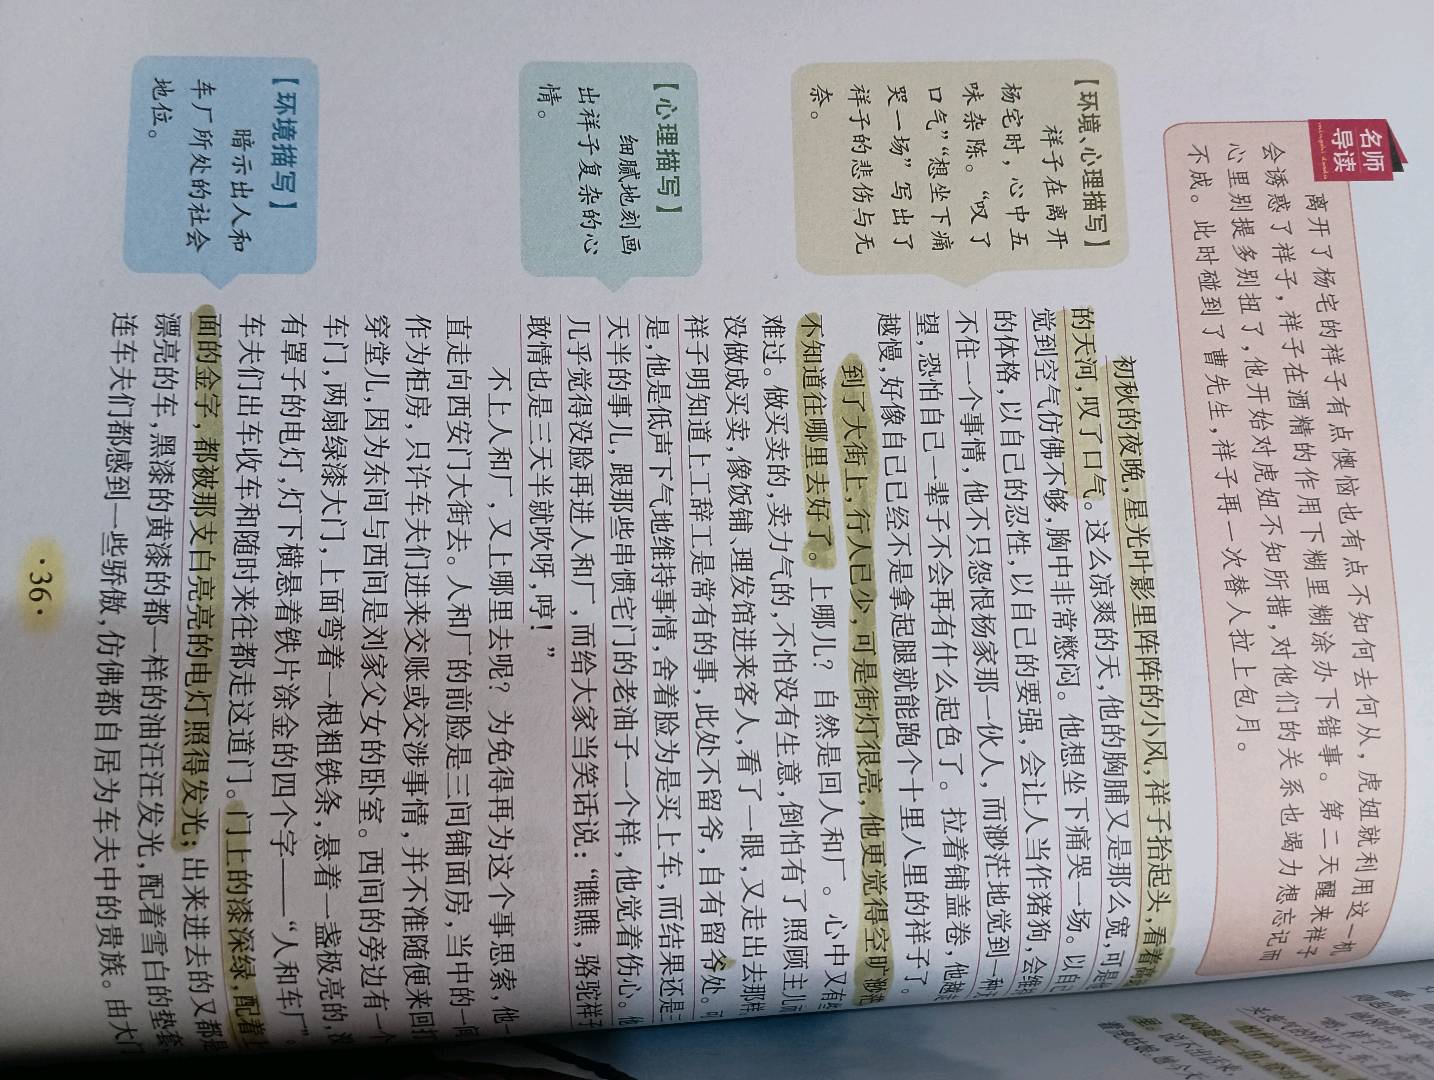 名师
导读
离开了杨宅的祥子有点懊恼也有点不知何去何从，虎妞就利用这一机
会诱惑了祥子，祥子在酒精的作用下糊里糊涂办下错事。第二天醒来祥子
心里别提多别扭了，他开始对虎妞不知所措，对他们的关系也竭力想忘记而
不成。此时碰到了曹先生，祥子再一次替人拉上包月。
【环境、心理描写】
祥子在离开
杨宅时，心中五
味杂陈。“叹了
口气”“想坐下痛
哭一场”写出了
祥子的悲伤与无
奈。
【心理描写】
细腻地刻画
出祥子复杂的心
情。
【环境描写】
暗示出人和
车厂所处的社会
地位。
初秋的夜晚，星光叶影里阵阵的小风，祥子抬起头，看着高
的天河，叹了口气。这么凉爽的天，他的胸脯又是那么宽，可是
觉到空气仿佛不够，胸中非常憋闷。他想坐下痛哭一场。以自
的体格，以自己的忍性，以自己的要强，会让人当作猪狗，会维
不住一个事情，他不只怨恨杨家那一伙人，而渺茫地觉到一种
望，恐怕自己一辈子不会再有什么起色了。拉着铺盖卷，他越
越慢，好像自己已经不是拿起腿就能跑个十里八里的祥子了。
到了大街上，行人已少，可是街灯很亮，他更觉得空旷渺茫
不知道往哪里去好了。上哪儿？自然是回人和厂。心中又有
难过。做买卖的，卖力气的，不怕没有生意，倒怕有了照顾主儿
没做成买卖，像饭铺、理发馆进来客人，看了一眼，又走出去那样
祥子明知道上工辞工是常有的事，此处不留爷，自有留爷处。可
是，他是低声下气地维持事情，舍着脸为是买上车，而结果还是三
天半的事儿，跟那些串惯宅门的老油子一个样，他觉着伤心。他
几乎觉得没脸再进人和厂，而给大家当笑话说：“瞧瞧，骆驼祥子
敢情也是三天半就吹呀，哼！”
不上人和厂，又上哪里去呢？为免得再为这个事思索，他一
直走向西安门大街去。人和厂的前脸是三间铺面房，当中的一间
作为柜房，只许车夫们进来交账或交涉事情，并不准随便来回打
穿堂儿，因为东间与西间是刘家父女的卧室。西间的旁边有一个
车门，两扇绿漆大门，上面弯着一根粗铁条，悬着一盏极亮的，没
有罩子的电灯，灯下横悬着铁片涂金的四个字——“人和车厂”。
车夫们出车收车和随时来往都走这道门。门上的漆深绿，配着上
面的金字，都被那支白亮亮的电灯照得发光；出来进去的又都是
漂亮的车，黑漆的黄漆的都一样的油汪汪发光，配着雪白的垫套，
连车夫们都感到一些骄傲，仿佛都自居为车夫中的贵族。由大门
·36·